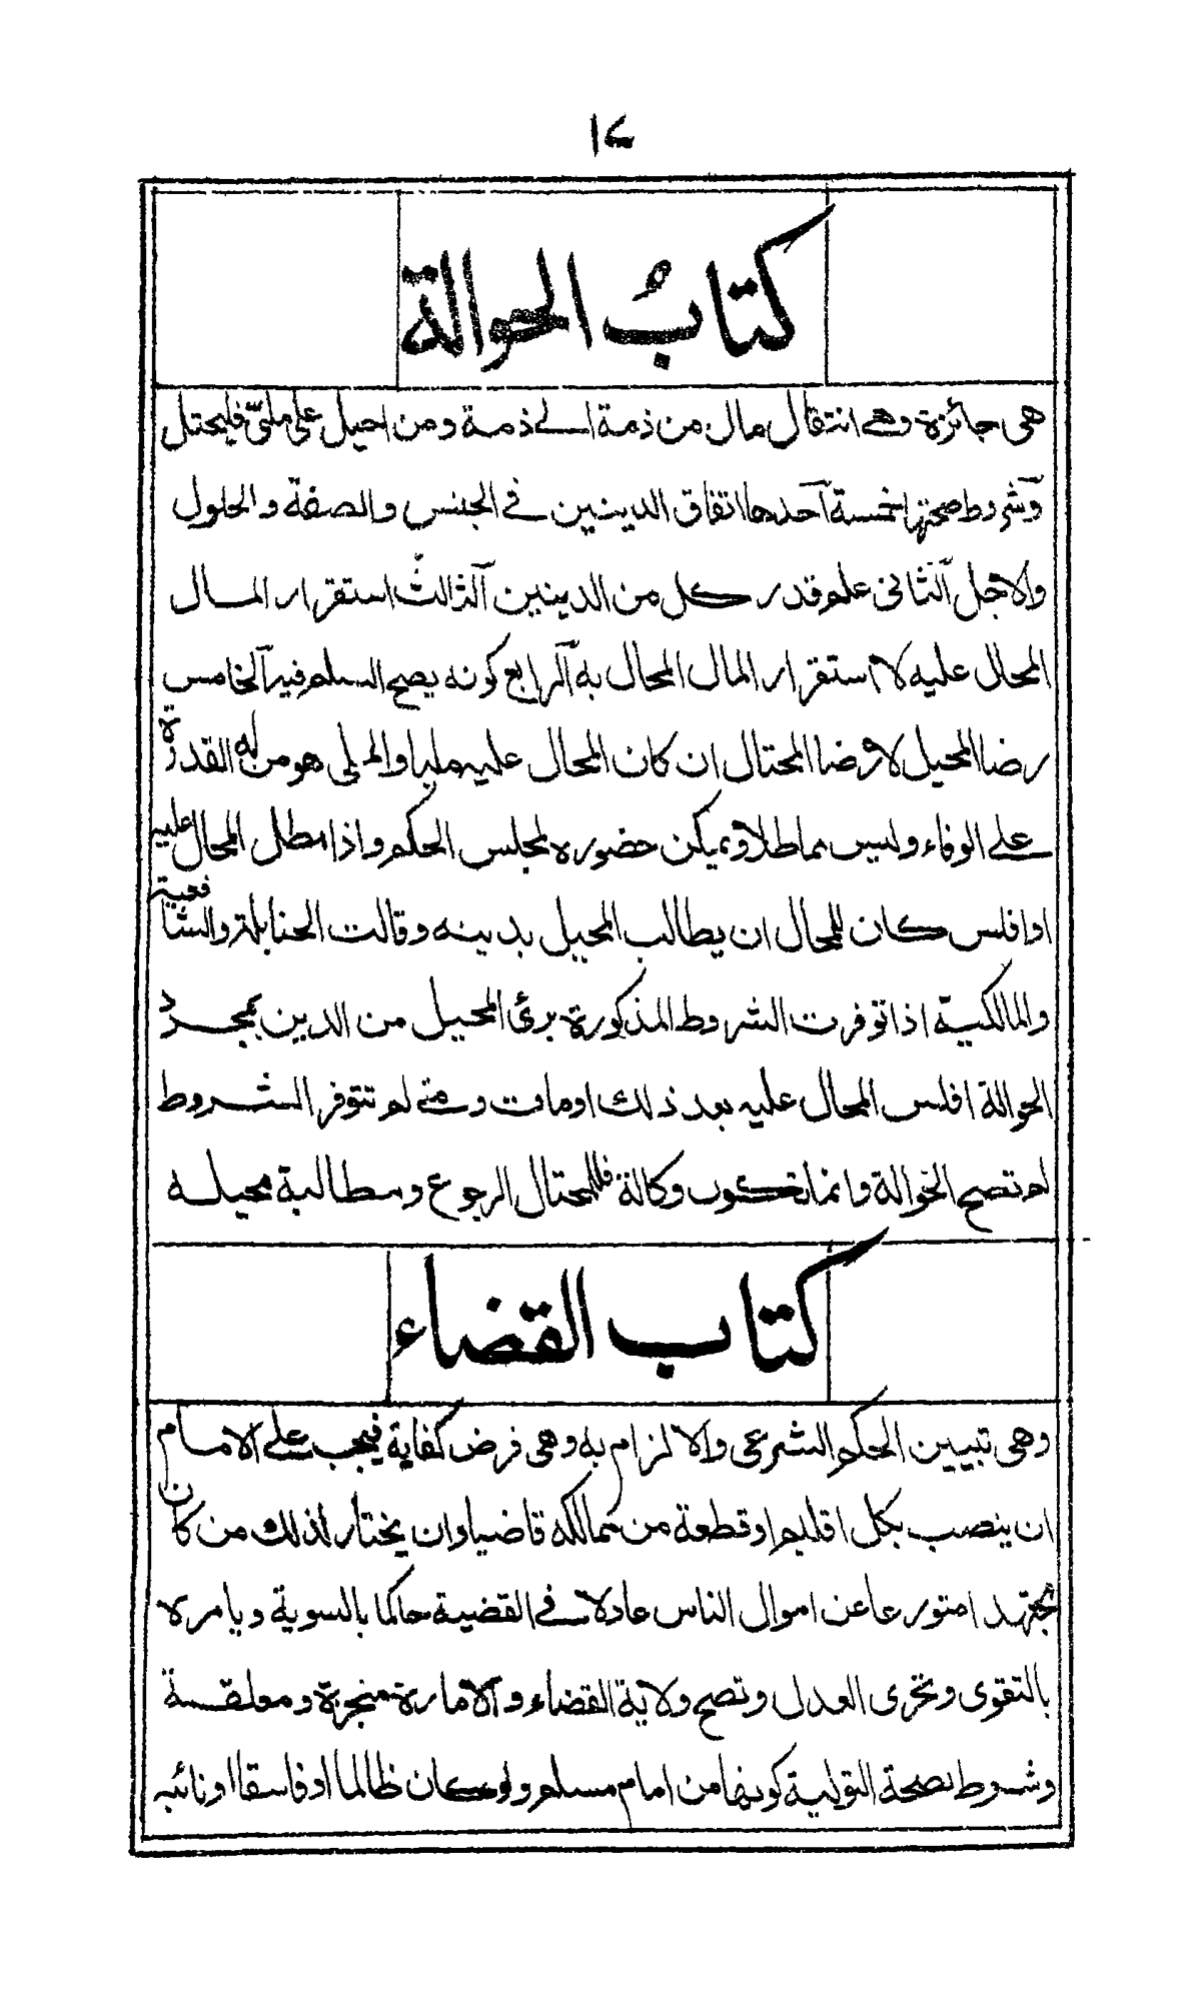 ١٢
كتابُ الحوالة
هى جائزة وهى انتقال مال من ذمة الى ذمة ومن احيل على ملئ فليحتل
وشروط صحتها خمسة آحدها اتفاق الدينين فى الجنس والصفة والحلول
والاجل آلثانى علم قدر كل من الدينين آلثالث استقرار المال
المحال عليه لا استقرار المال المحال به آلرابع كونه يصح السلم فيه آلخامس
رضا المحيل لا رضا المحتال ان كان المحال عليه مليا والملى هو من له القدرة
على الوفاء وليس مماطلا ويمكن حضوره لمجلس الحكم واذا مطل المحال عليه
او افلس كان للمحال ان يطالب المحيل بدينه وقالت الحنابلة والشافعية
والمالكية اذا توفرت الشروط المذكورة برئ المحيل من الدين بمجرد
الحوالة افلس المحال عليه بعد ذلك او مات ومتى لم تتوفر الشروط
لم تصح الحوالة وانما تكون وكالة فللمحتال الرجوع ومطالبة محيله
كتاب القضاء
وهى تبيين الحكم الشرعى والالزام به وهى فرض كفاية فيجب على الامام
ان ينصب بكل اقليم او قطعة من ممالكه قاضيا وان يختار لذلك من كان
مجتهدا متورعا عن اموال الناس عادلا فى القضية حاكما بالسوية ويامره
بالتقوى وتحرى العدل وتصح ولاية القضاء والامارة منجزة ومعلقة
وشروط لصحة التولية كونها من امام مسلم ولو كان ظالما او فاسقا او نائبه